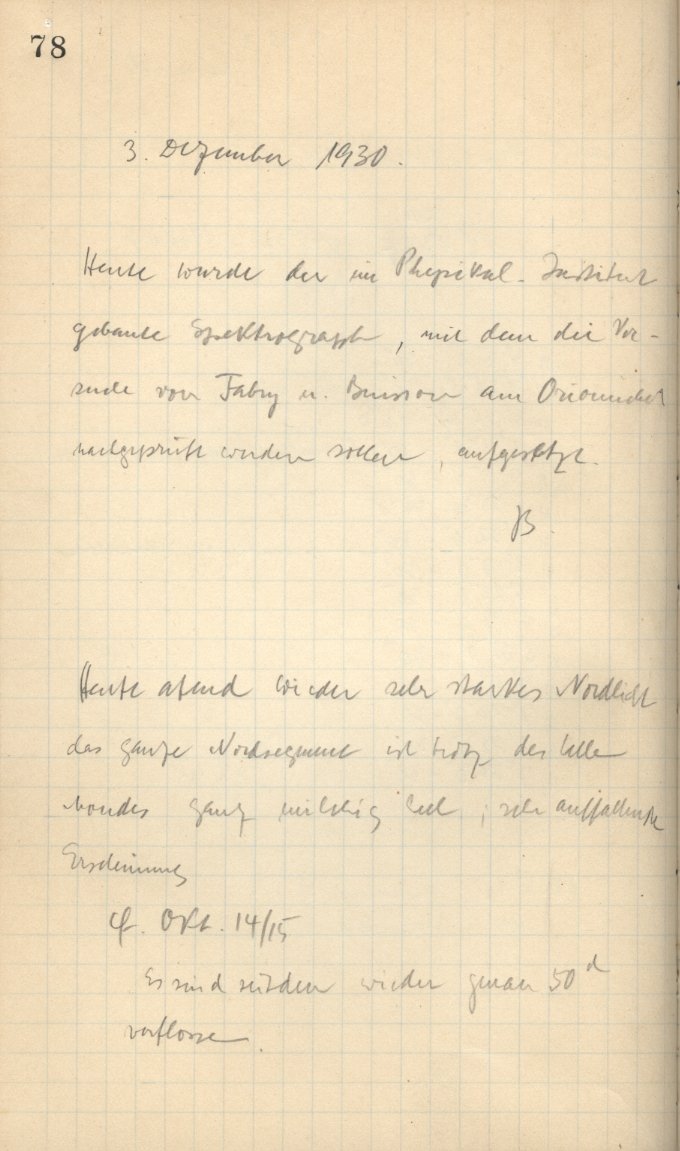 78
3. Dezember 1930.
Heute wurde der im Physikal. Institut
gebaute Spektrograph, mit dem die Ver-
suche von Fabry u. Buisson am Orionnebel
nachgeprüft werden sollen, aufgesetzt.
B.
Heute abend wieder sehr starkes Nordlicht
das ganze Nordsegment ist trotz des hellen
Mondes ganz milchig hell, sehr auffallende
Erscheinung
cf. Okt. 14/15
Es sind seitdem wieder genau 50 d
verflossen.